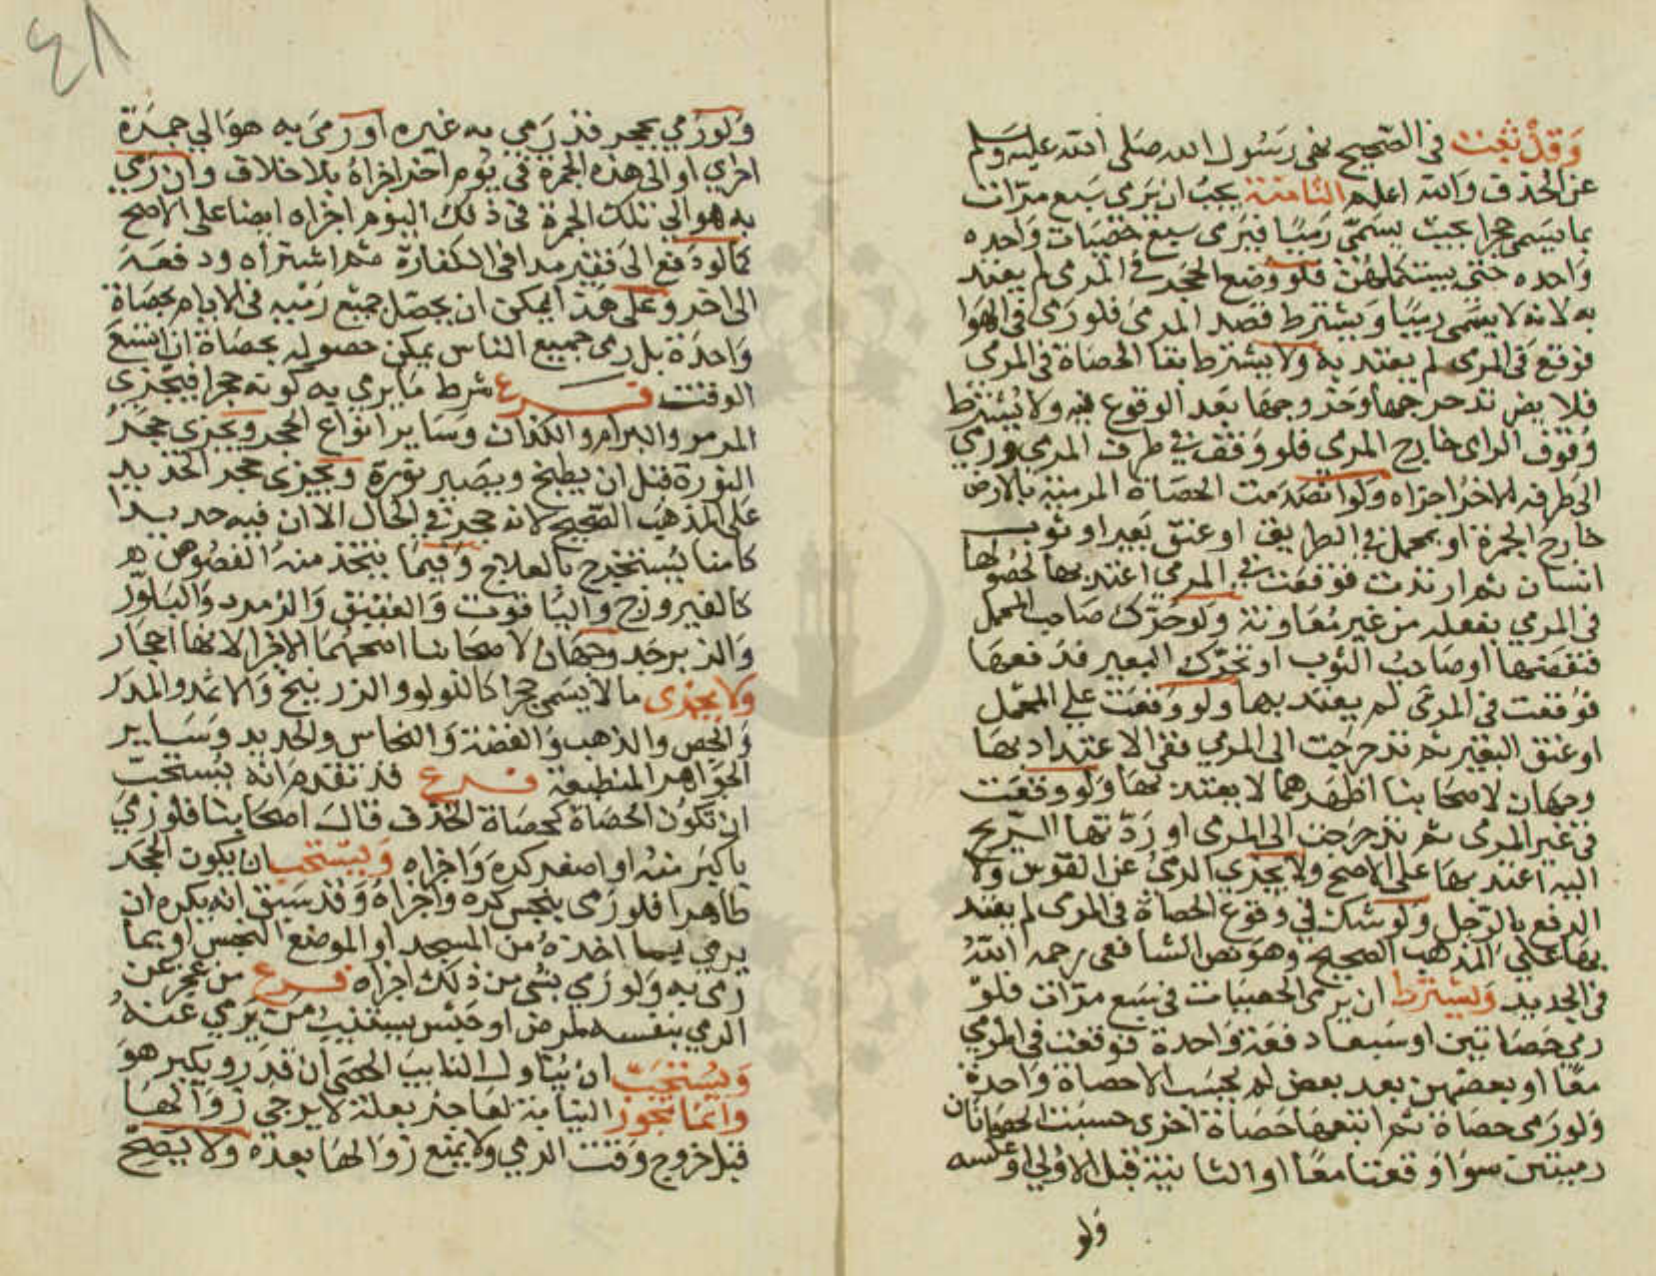 وقد ثبت في الصحيح نهى رسول الله صلى الله عليه وسلم
عن الخذف والله اعلم الثامنة يجب ان يرمى سبع مرات
بما يسمى حجرا بحيث يسمى رميا فيرمى سبع حصيات واحده
واحده حتى يستكملهن فلو وضع الحجر في المرمى لم يعتد
به لانه لا يسمى رميا ويشترط قصد المرمى فلو رمى في الهوا
فوقع في المرمى لم يعتد به ولا يشترط بقا الحصاة في المرمى
فلا يضر تدحرجها وخروجها بعد الوقوع فيه ولا يشترط
وقوف الرامى خارج المرمى فلو وقف في طرف المرمى ورمي
الى طرفه الاخر اجزاه ولو انصدمت الحصاة المرمية بالارض
خارج الجمرة او بمحمل في الطريق او عنق بعير او ثوب
انسان ثم ارتدت فوقعت في المرمي اعتد بها لحصولها
في المرمي بفعله من غير معاونة ولو حرك صاحب المحمل
فنفضها او صاحب الثوب او تحرك البعير فدفعها
فوقعت في المرمى لم يعتد بها ولو وقعت علي المحمل
او عنق البعير ثم تدحرجت الى المرمي ففى الاعتداد بها
وجهان لاصحابنا اظهرهما لا يعتد بها ولو وقعت
في غير المرمى ثم تدحرجت الى المرمى او ردتها الريح
اليه اعتد بها على الاصح ولا يجزي الرمي عن القوس ولا
الدفع بالرجل ولو شك في وقوع الحصاة في المرمى لم يعتد
بها على المذهب الصحيح وهو نص الشافعى رحمه الله
في الجديد ويشترط ان يرمى الحصيات في سبع مرات فلو
رمي حصاتين او سبعا دفعة واحدة فوقعت في المرمي
معا او بعضهن بعد بعض لم يحسب الا حصاة واحدة
ولو رمى حصاة ثم اتبعها حصاة اخرى حسبت الحصاتان
رميتين سوا وقعتا معا او الثانية قبل الاولي او عكسه
ولو
٤٨
ولو رمي بحجر قد رمي به غيره او رمى به هو الي جمرة
اخري او الى هذه الجمرة في يوم اخر اجزاه بلا خلاف وان رمي
به هو الي تلك الجمرة في ذلك اليوم اجزاه ايضا على الاصح
كما لو دفع الى فقير مدا في الكفارة ثم اشتراه ودفعه
الى اخر وعلى هذا يمكن ان يحصل جميع رميه في الايام بحصاة
واحدة بل رمى جميع الناس يمكن حصوله بحصاة ان اتسع
الوقت فرع شرط ما يرمي به كونه حجرا فيجزي
المرمر والبرام والكذان وساير انواع الحجر ويجزي حجر
النورة قبل ان يطبخ ويصير نورة ويجزى حجر الحديد
على المذهب الصحيح لانه حجر في الحال الا ان فيه حديدا
كامنا يستخرج بالعلاج وفيما يتخذ منه الفصوص
كالفيروزج والياقوت والعقيق والزمرد والبلور
والزبرجد وجهان لاصحابنا اصحهما الاجزا لانها احجار
ولا يجزى ما لا يسمى حجرا كاللولو والزرنيخ والاثمد والمدر
والجص والذهب والفضة والنحاس والحديد وساير
الجواهر المنطبعة فرع قد تقدم انه يستحب
ان تكون الحصاة كحصاة الخذف قال اصحابنا فلو رمى
باكبر منه او اصغر كره واجزاه ويستحب ان يكون الحجر
طاهرا فلو رمى بنجس كره واجزاه وقد سبق انه يكره ان
يرمي بما اخذه من المسجد او الموضع النجس او بما
رمى به ولو رمي بشى من ذلك اجزاه فرع من عجز عن
الرمي بنفسه لمرض او حبس يستنيب من يرمي عنه
ويستحب ان يناول النايب الحصى ان قدر ويكبر هو
وانما تجوز النيابة لعاجز بعلة لا يرجى زوالها
قبل خروج وقت الرمي ولا يمنع زوالها بعده ولا يصح